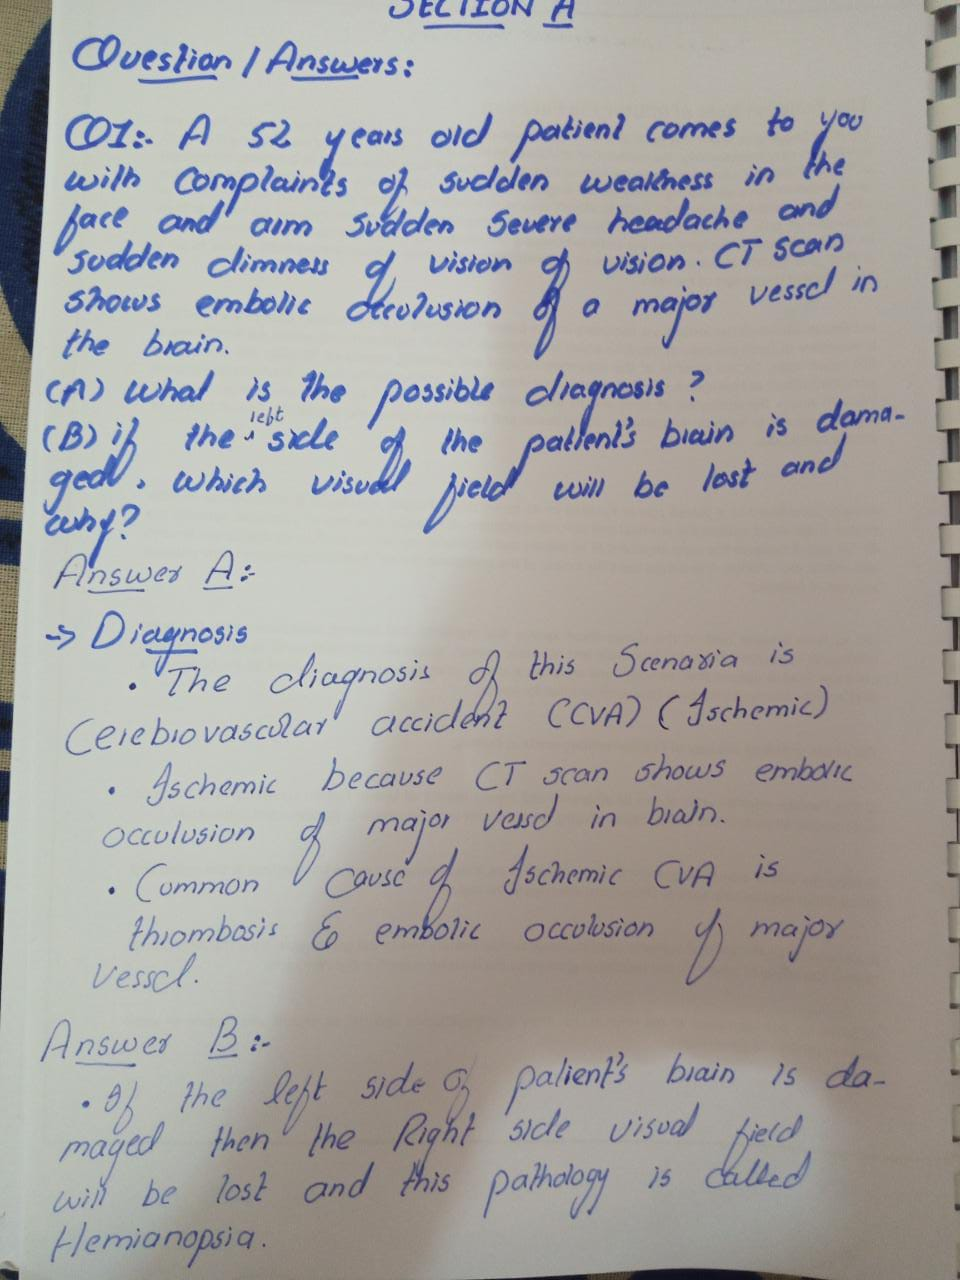 SECTION A
Question / Answers:
Q1:- A 52 years old patient comes to you
with complaints of sudden weakness in the
face and arm sudden severe headache and
sudden dimness of vision of vision. CT scan
shows embolic occulusion of a major vessel in
the brain.
(A) what is the possible diagnosis?
(B) if the left side of the patient's brain is dama-
ged, which visual field will be lost and
why?
Answer A:-
-> Diagnosis
• The diagnosis of this Scenaria is
Cerebrovascular accident (CVA) (Ischemic)
• Ischemic because CT scan shows embolic
occulusion of major vessel in brain.
• Common cause of Ischemic CVA is
thrombosis & embolic occulusion of major
vessel.
Answer B:-
• If the left side of patient's brain is da-
maged then the Right side visual field
will be lost and this pathology is called
Hemianopsia.